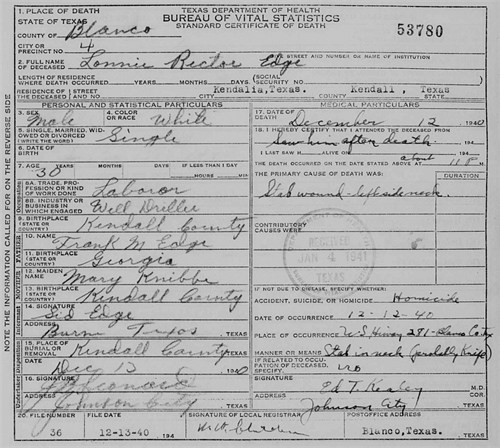 1. PLACE OF DEATH
STATE OF TEXAS
COUNTY OF Blanco
CITY OR
PRECINCT NO. 4
TEXAS DEPARTMENT OF HEALTH
BUREAU OF VITAL STATISTICS
STANDARD CERTIFICATE OF DEATH
53780
STREET AND NUMBER OR NAME OF INSTITUTION
2. FULL NAME
OF DECEASED Lonnie Rector Edge
LENGTH OF RESIDENCE
WHERE DEATH OCCURRED YEARS MONTHS DAYS (SOCIAL SECURITY NO.
RESIDENCE OF THE DECEASED Kendalia, Texas. Kendall, Texas
COUNTY STATE
PERSONAL AND STATISTICAL PARTICULARS
3. SEX Male
4. COLOR OR RACE White
5. SINGLE, MARRIED, WIDOWED OR DIVORCED (WRITE THE WORD) Single
6. DATE OF BIRTH
7. AGE YEARS MONTHS DAYS IF LESS THAN 1 DAY
30 HOURS MIN
8A. TRADE, PROFESSION OR KIND OF WORK DONE Laboror
8B. INDUSTRY OR BUSINESS IN WHICH ENGAGED Well Driller
9. BIRTHPLACE (STATE OR COUNTRY) Kendall County
10. NAME Frank M Edge
11. BIRTHPLACE (STATE OR COUNTRY) Georgia
12. MAIDEN NAME Mary Knibbe
13. BIRTHPLACE (STATE OR COUNTRY) Kendall County
14. SIGNATURE Sid Edge
ADDRESS Texas TEXAS
15. PLACE OF BURIAL OR REMOVAL Kendall County TEXAS
Dec 13 1940
16. SIGNATURE
ADDRESS Johnson City TEXAS
MEDICAL PARTICULARS
17. DATE OF DEATH December 12 1940
18. I HEREBY CERTIFY THAT I ATTENDED THE DECEASED FROM
Saw him after death. 194
I LAST SAW H ALIVE ON 194
THE DEATH OCCURRED ON THE DATE STATED ABOVE AT about 11 P M.
THE PRIMARY CAUSE OF DEATH WAS: DURATION
Stab wound - left side neck.
CONTRIBUTORY CAUSES WERE:
RECEIVED
JAN 4 1941
TEXAS
IF NOT DUE TO DISEASE, SPECIFY WHETHER:
ACCIDENT, SUICIDE, OR HOMICIDE Homicide
DATE OF OCCURRENCE 12-12-40
PLACE OF OCCURRENCE U S Hiway 281
MANNER OR MEANS Stab in neck (probably Knife)
IF RELATED TO OCCUPATION OF DECEASED, SPECIFY no
SIGNATURE M.D.
ADDRESS Johnson City TEXAS
20. FILE NUMBER FILE DATE SIGNATURE OF LOCAL REGISTRAR POSTOFFICE ADDRESS
36 12-13-40 194 Blanco, Texas. TEXAS
NOTE THE INFORMATION CALLED FOR ON THE REVERSE SIDE